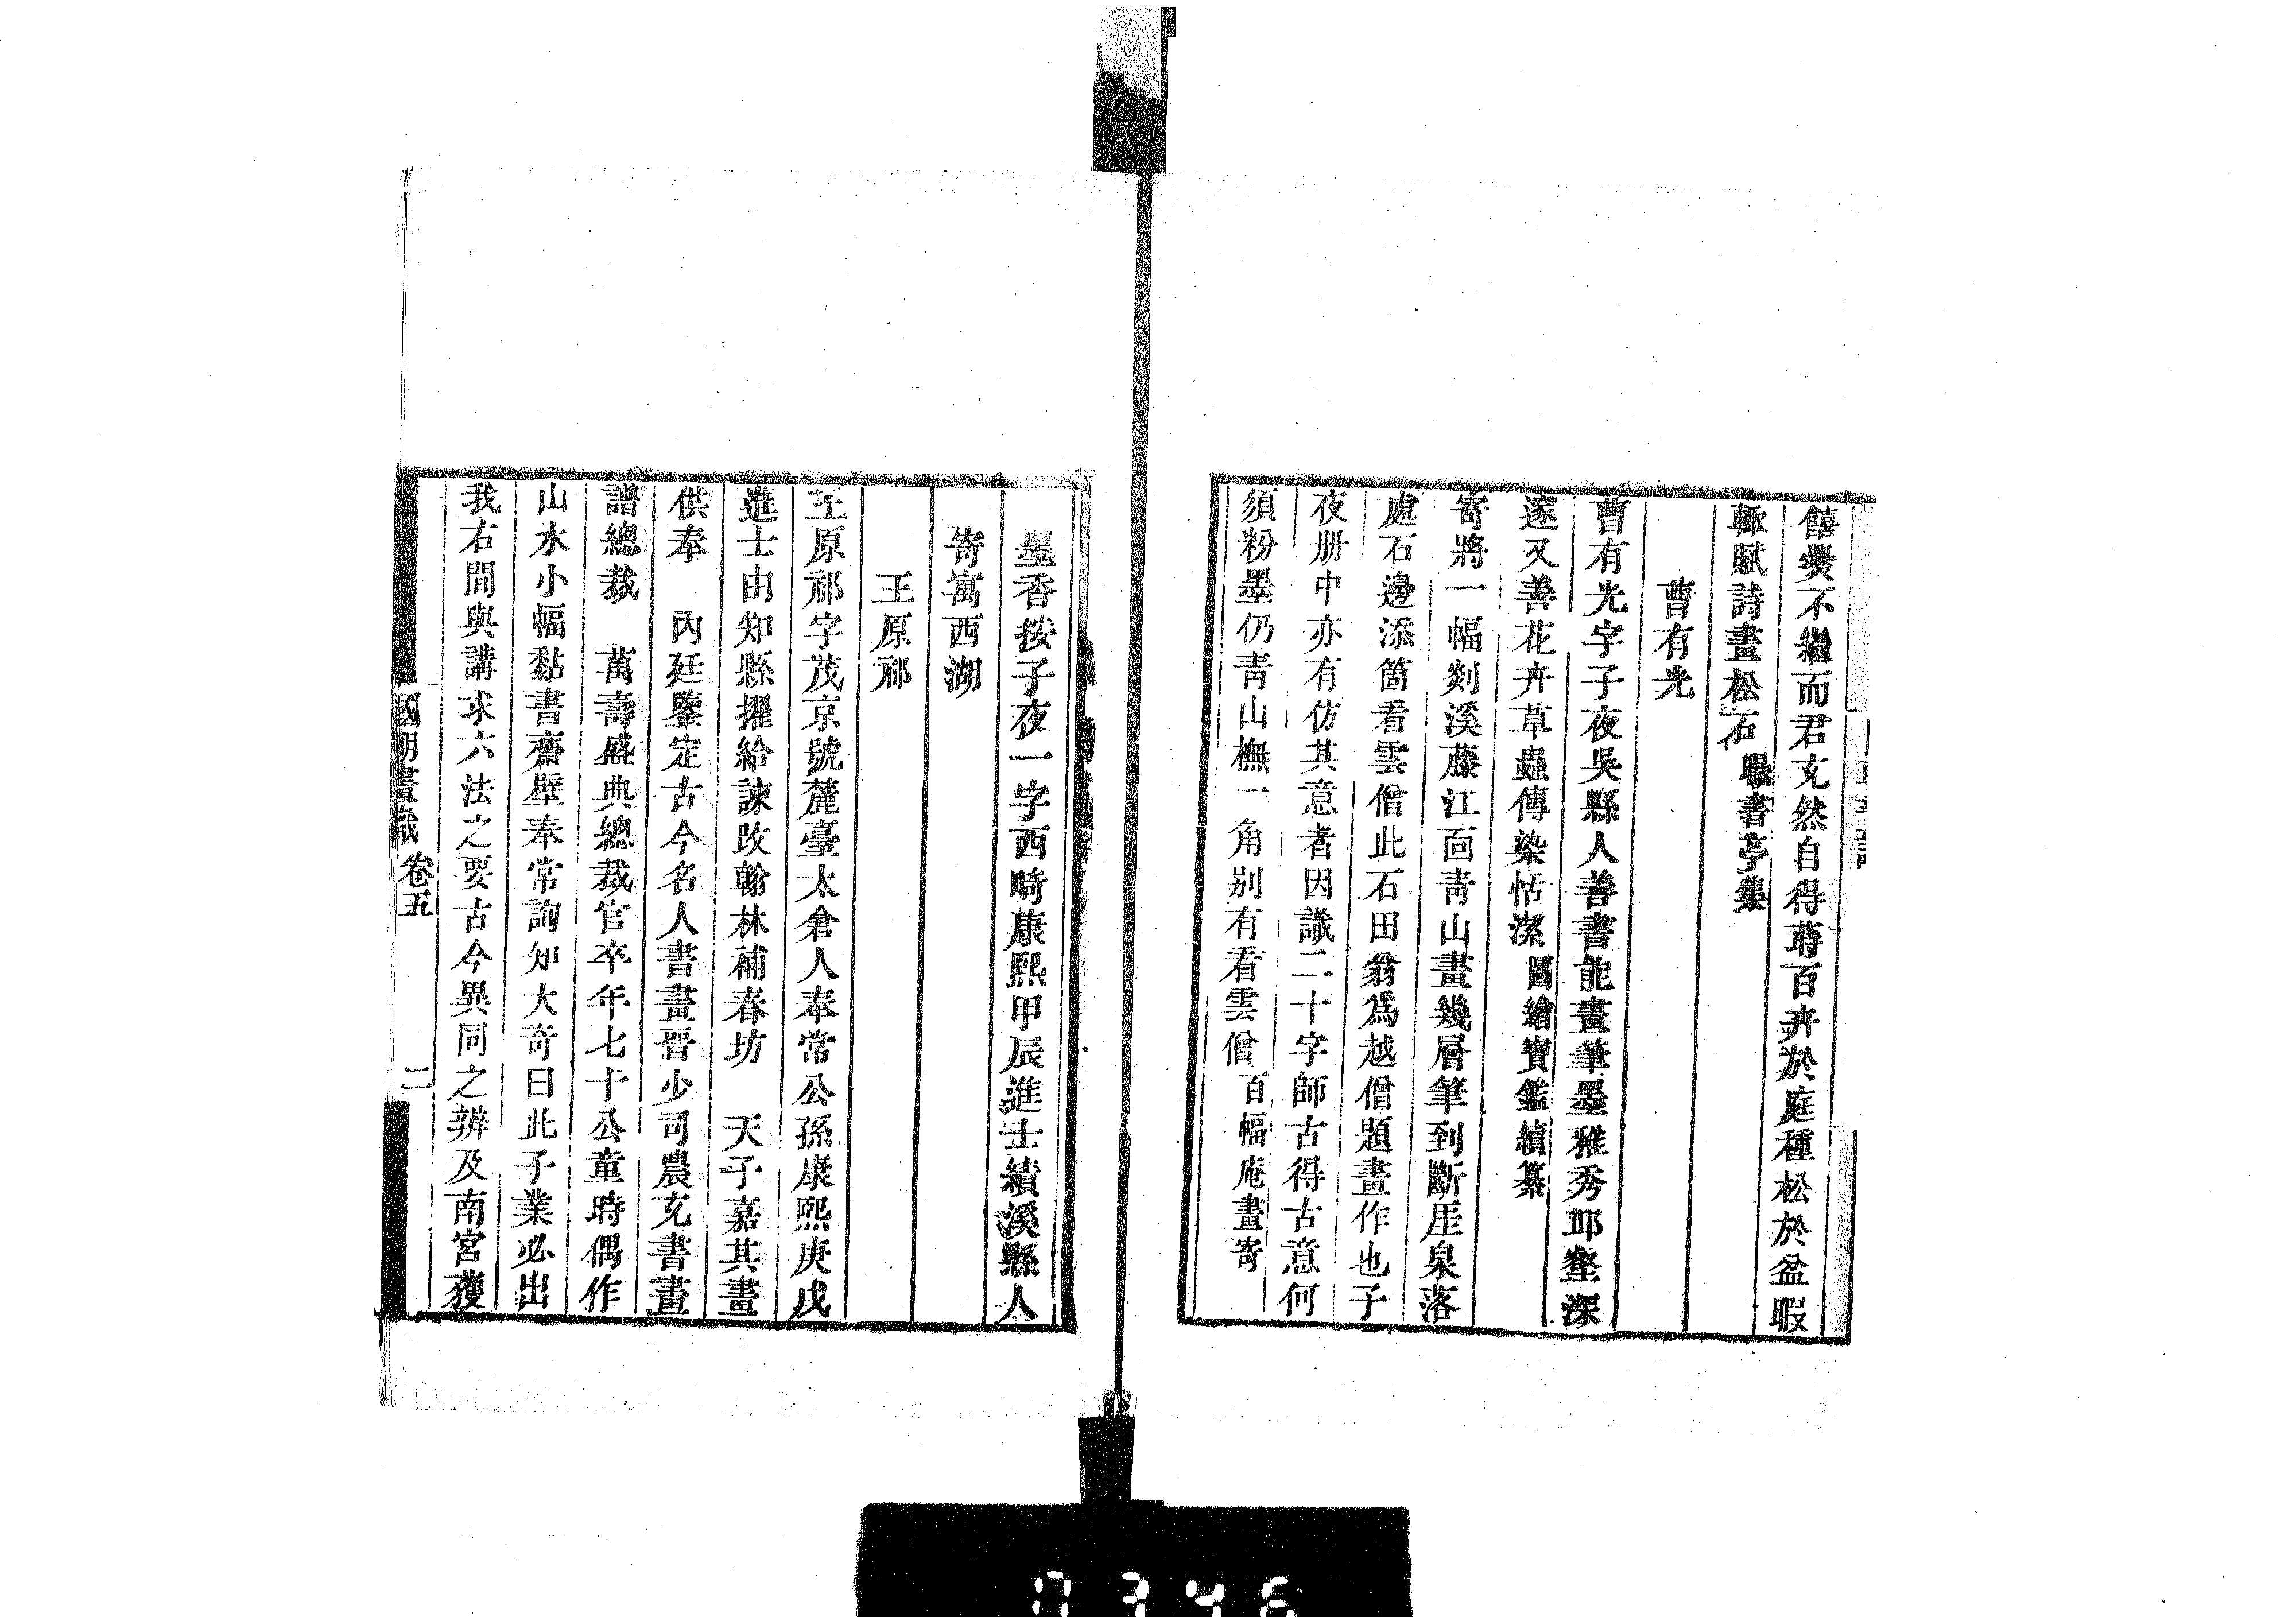 饎爨不繼而君充然自得蒔百卉於庭種松於盆暇
輒賦詩畫松石曝書亭集
曹有光
曹有光字子夜吳縣人善書能畫筆墨雅秀邱壑深
邃又善花卉草蟲傳染恬潔圖繪寶鑑續纂
寄將一幅剡溪藤江面青山畫幾層筆到斷厓泉落
處石邊添箇看雲僧此石田翁爲越僧題畫作也子
夜册中亦有仿其意者因識二十字師古得古意何
須粉墨仍青山橅一角別有看雲僧百幅庵畫寄
墨香按子夜一字西畸康熙甲辰進士績溪縣人
寄寓西湖
王原祁
王原祁字茂京號麓臺太倉人奉常公孫康熙庚戌
進士由知縣擢給諫改翰林補春坊 天子嘉其畫
供奉 內廷鑒定古今名人書畫晉少司農充書畫
譜總裁 萬壽盛典總裁官卒年七十公童時偶作
山水小幅黏書齋壁奉常詢知大奇曰此子業必出
我右間與講求六法之要古今異同之辨及南宮獲
國朝畫識 卷五 二
0346